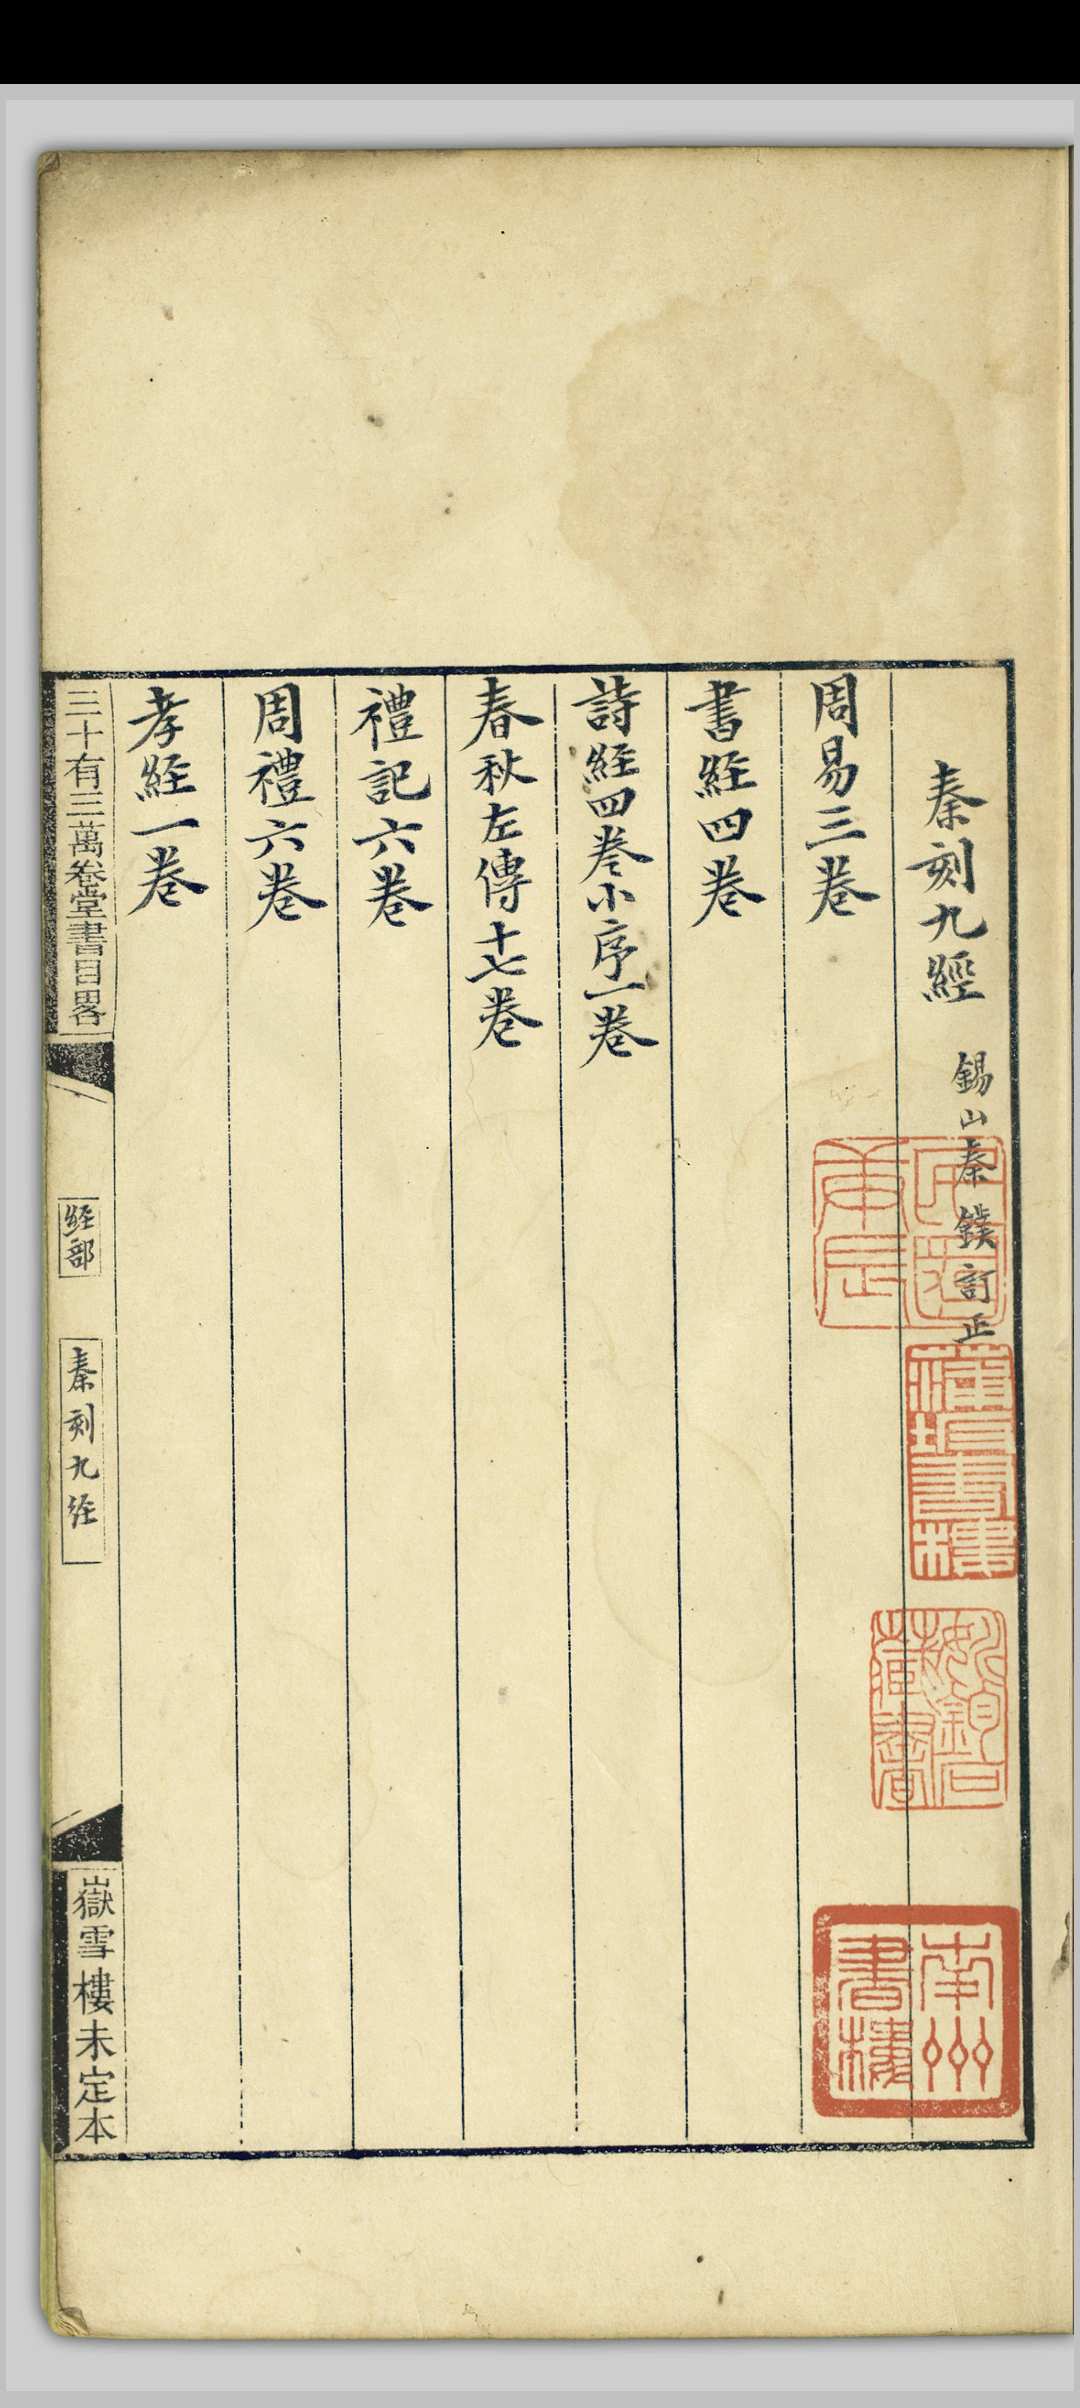 秦刻九經 錫山秦鏷訂正
周易三卷
書經四卷
詩經四卷小序一卷
春秋左傳十七卷
禮記六卷
周禮六卷
孝經一卷
三十有三萬卷堂書目畧
経部
秦刻九経
嶽雪樓未定本
南州書樓